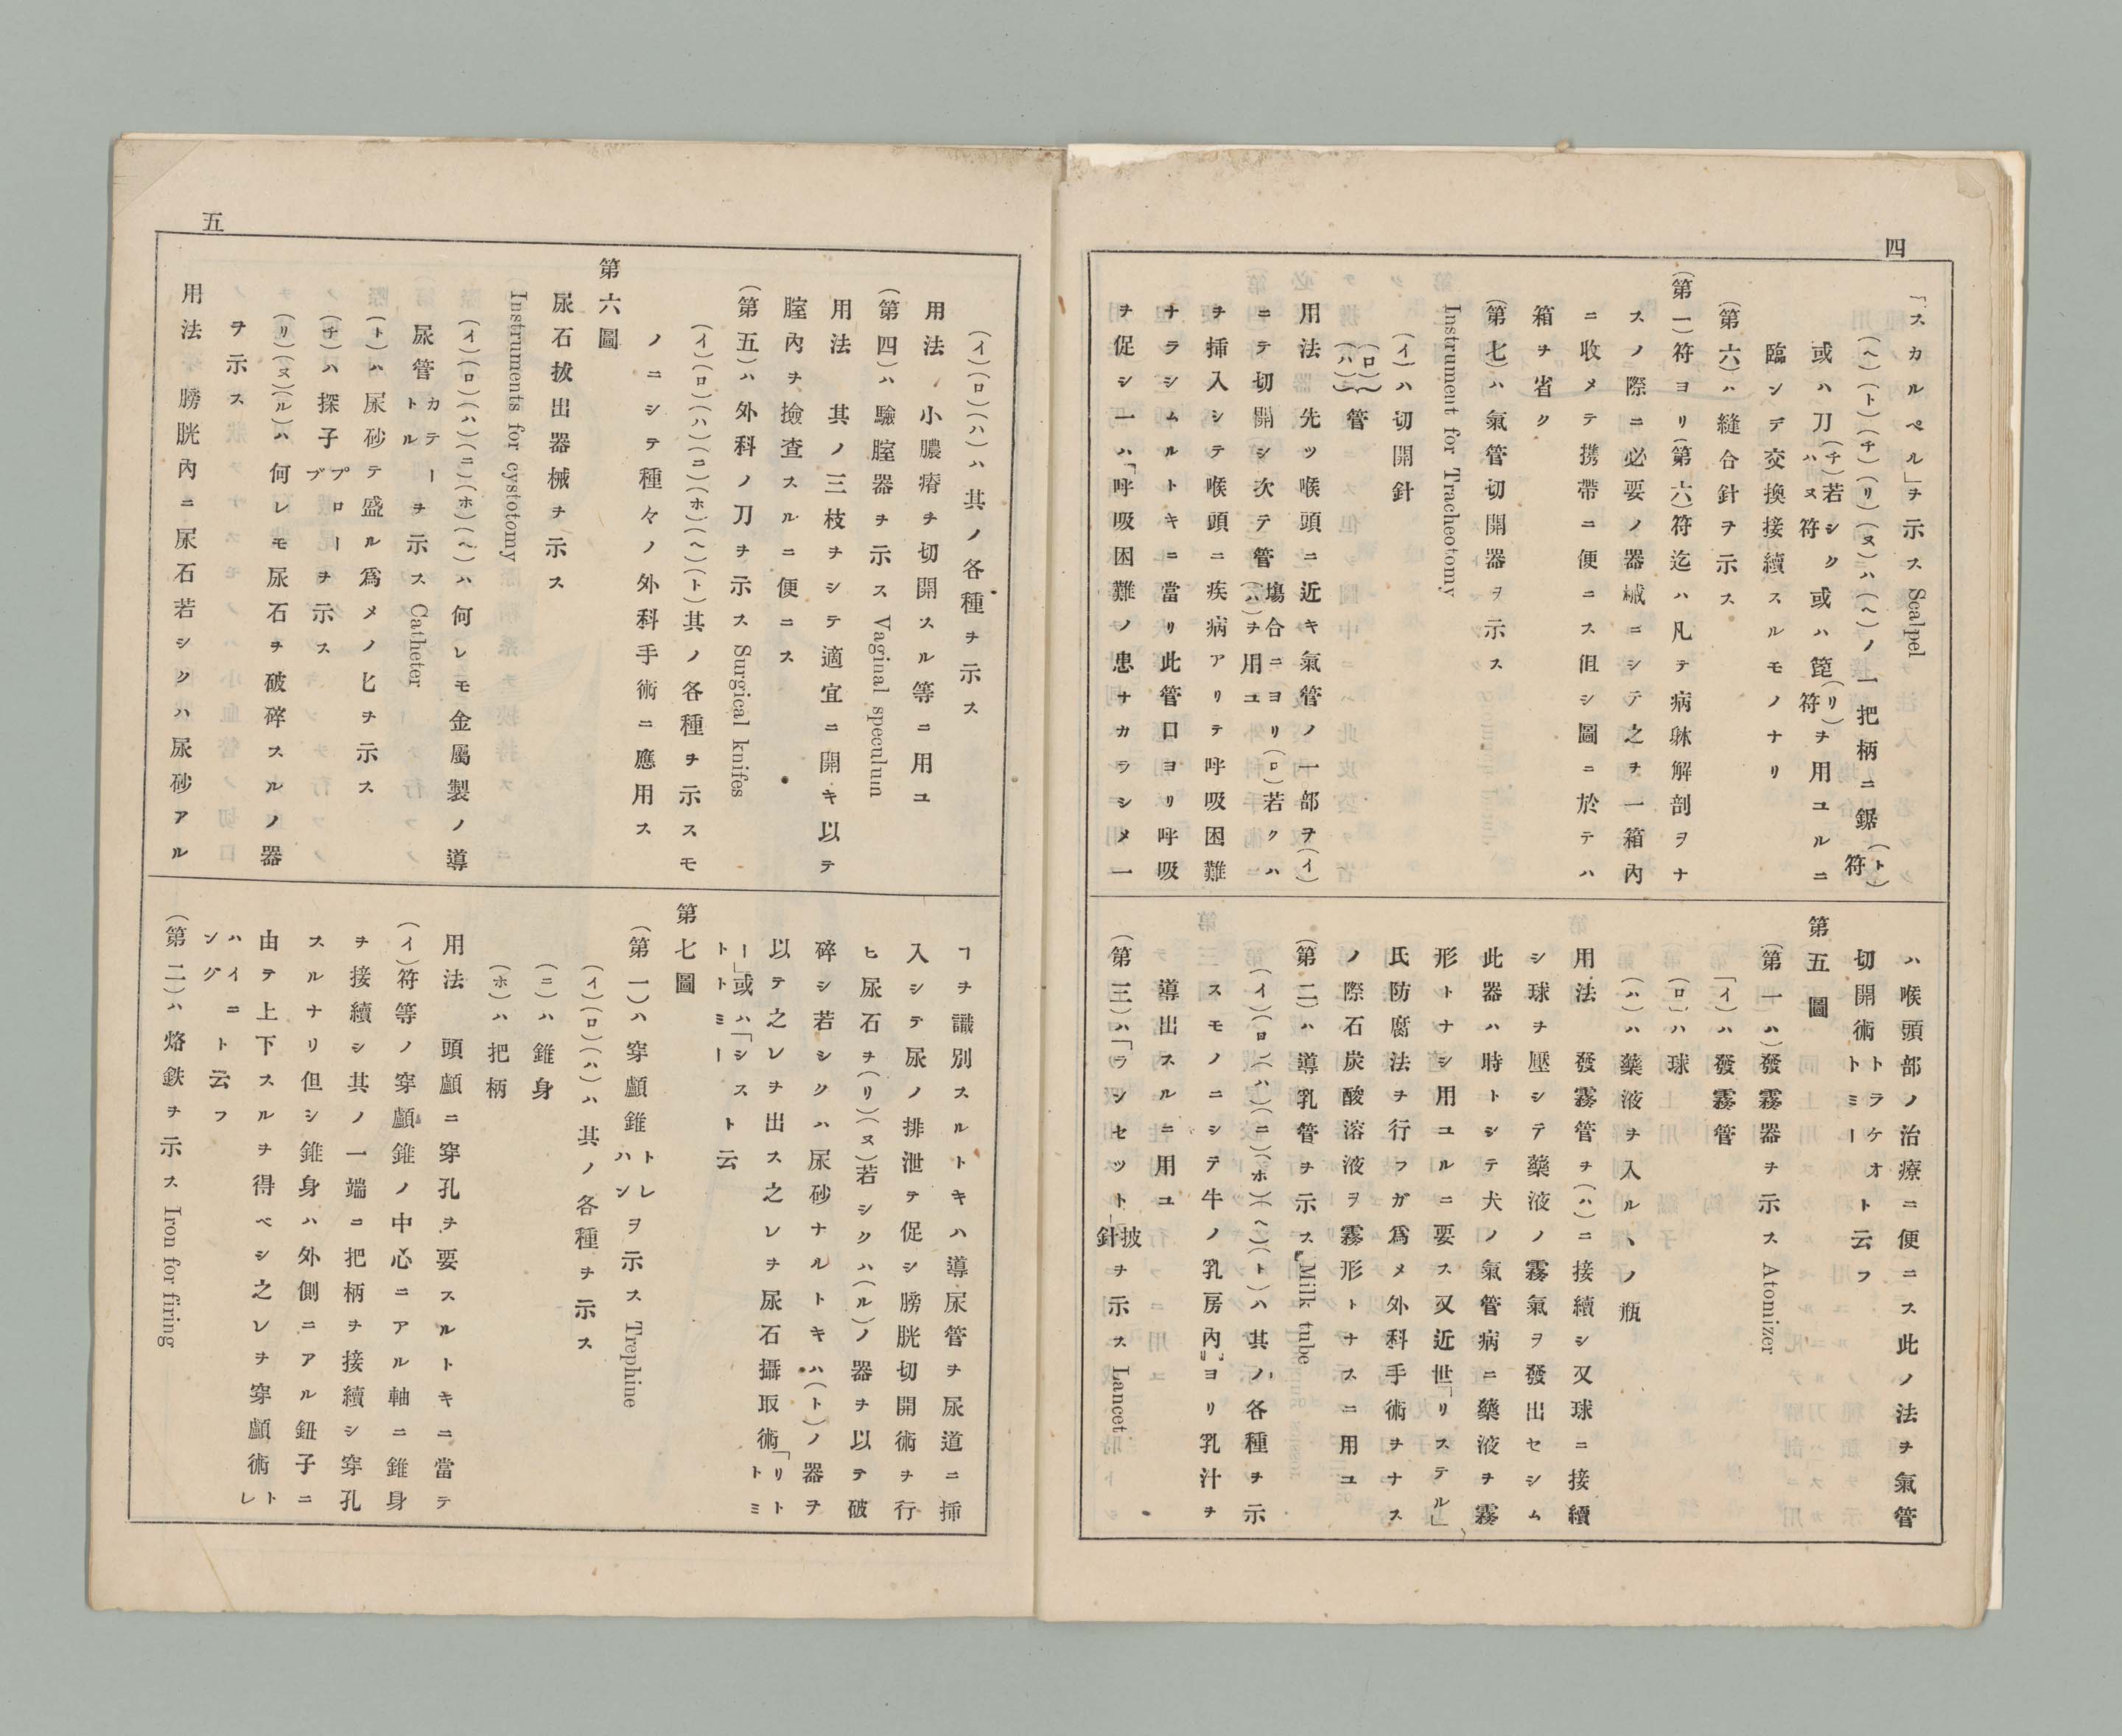 四
「スカルペル」ヲ示ス Scalpel
(ヘ)(ト)(チ)(リ)(ヌ)ハ(ヘ)ノ一把柄ニ鋸(ト)符
或ハ刀(チ)ハ(ヌ)符若シク或ハ箆(リ)符ヲ用ユルニ
臨ンデ交換接續スルモノナリ
(第六)ハ縫合針ヲ示ス
(第一)符ヨリ(第六)符迄ハ凡テ病躰解剖ヲナ
スノ際ニ必要ノ器械ニシテ之ヲ一箱內
ニ收メテ携帶ニ便ニス但シ圖ニ於テハ
箱ヲ省ク
(第七)ハ氣管切開器ヲ示ス
Instrument for Tracheotomy
(イ)ハ切開針
(ロ)(ハ)管
用法先ツ喉頭ニ近キ氣管ノ一部ヲ(イ)
ニテ切開シ次テ塲合ニヨリ(ロ)若クハ(ハ)管ヲ用ユ
ヲ挿入シテ喉頭ニ疾病アリテ呼吸困難
ナラシムルトキニ當リ此管口ヨリ呼吸
ヲ促シ一ハ「呼吸困難ノ患ナカラシメ一
ハ喉頭部ノ治療ニ便ニス此ノ法ヲ氣管
切開術トラケオトミート云フ
第五圖
(第一ハ)發霧器ヲ示ス Atomizer
「イ)ハ發霧管
(ロ)ハ球
(ハ)ハ藥液ヲ入ルヽノ瓶
用法 發霧管ヲ(ハ)ニ接續シ又球ニ接續
シ球ヲ壓シテ藥液ノ霧氣ヲ發出セシム
此器ハ時トシテ犬ノ氣管病ニ藥液ヲ霧
形トナシ用ユルニ要ス又近世「リステル」
氏防腐法ヲ行フガ爲メ外科手術ヲナス
ノ際石炭酸溶液ヲ霧形トナスニ用ユ
(第二)ハ導乳管ヲ示ス Milk tube
(イ)(ロ)(ハ)(ニ)(ホ)(ヘ)(ト)ハ其ノ各種ヲ示
スモノニシテ牛ノ乳房內ヨリ乳汁ヲ
導出スルニ用ユ
(第三)ハ「ランセット」披針ヲ示ス Lancet
五
(イ)(ロ)(ハ)ハ其ノ各種ヲ示ス
用法 小膿瘠ヲ切開スル等ニ用ユ
(第四)ハ驗腟器ヲ示ス Vaginal speculum
用法 其ノ三枝ヲシテ適宜ニ開キ以テ
腟內ヲ撿査スルニ便ニス
(第五)ハ外科ノ刀ヲ示ス Surgical knifes
(イ)(ロ)(ハ)(ニ)(ホ)(ヘ)(ト)其ノ各種ヲ示スモ
ノニシテ種々ノ外科手術ニ應用ス
第六圖
尿石拔出器械ヲ示ス
Instruments for cystotomy
(イ)(ロ)(ハ)(ニ)(ホ)(ヘ)ハ何レモ金屬製ノ導
尿管カテートルヲ示ス Catheter
(ト)ハ尿砂テ盛ル爲メノ匕ヲ示ス
(チ)ハ探子プローブヲ示ス
(リ)(ヌ)(ル)ハ何レモ尿石ヲ破碎スルノ器
ヲ示ス
用法 膀胱內ニ尿石若シクハ尿砂アル
ヿヲ識別スルトキハ導尿管ヲ尿道ニ挿
入シテ尿ノ排泄テ促シ膀胱切開術ヲ行
ヒ尿石ヲ(リ)(ヌ)若シクハ(ル)ノ器ヲ以テ破
碎シ若シクハ尿砂ナルトキハ(ト)ノ器ヲ
以テ之レヲ出ス之レヲ尿石攝取術「リトトミ
ー」或ハ「シストトミート云
第七圖
(第一)ハ穿顱錐トレハンヲ示ス Trephine
(イ)(ロ)(ハ)ハ其ノ各種ヲ示ス
(ニ)ハ錐身
(ホ)ハ把柄
用法 頭顱ニ穿孔ヲ要スルトキニ當テ
(イ)符等ノ穿顱錐ノ中心ニアル軸ニ錐身
ヲ接續シ其ノ一端ニ把柄ヲ接續シ穿孔
スルナリ但シ錐身ハ外側ニアル鈕子ニ
由テ上下スルヲ得ベシ之レヲ穿顱術トレ
ハイニングト云フ
(第二)ハ烙鉄ヲ示ス Iron for firing